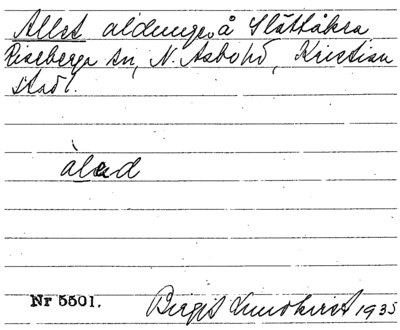 Allet aldunge, å Slättåkra
Riseberga sn, N. Åsbo hd, Kristian
stads l.
àled
Nr 5501. Birgit Lundkvist 1935